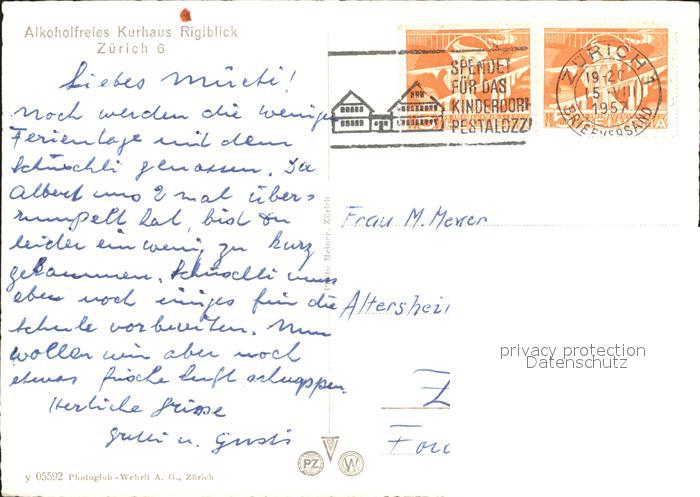 Alkoholfreies Kurhaus Rigiblick
Zürich 6
Liebes Müeti!
Noch werden die wenigen
Ferientage mit dem
Schüschli genossen. Da
Albert uns 2 mal über-
rumpelt hat, bist Du
leider ein wenig zu kurz
gekommen. Schüschli muss
aber noch einiges für die
Schule vorbereiten. Nun
wollen wir aber noch
etwas frische Luft schnappen.
Herzliche Grüsse
u. Gusti
y 05592 Photoglob-Wehrli A. G., Zürich
Photo Meiner, Zürich
PZ W
SPENDET
FÜR DAS
KINDERDORF
PESTALOZZI
ZÜRICH 1
19-20
15. VIII
1957
BRIEFVERSAND
Frau M. Meier
Altershei
Z
privacy protection
Datenschutz